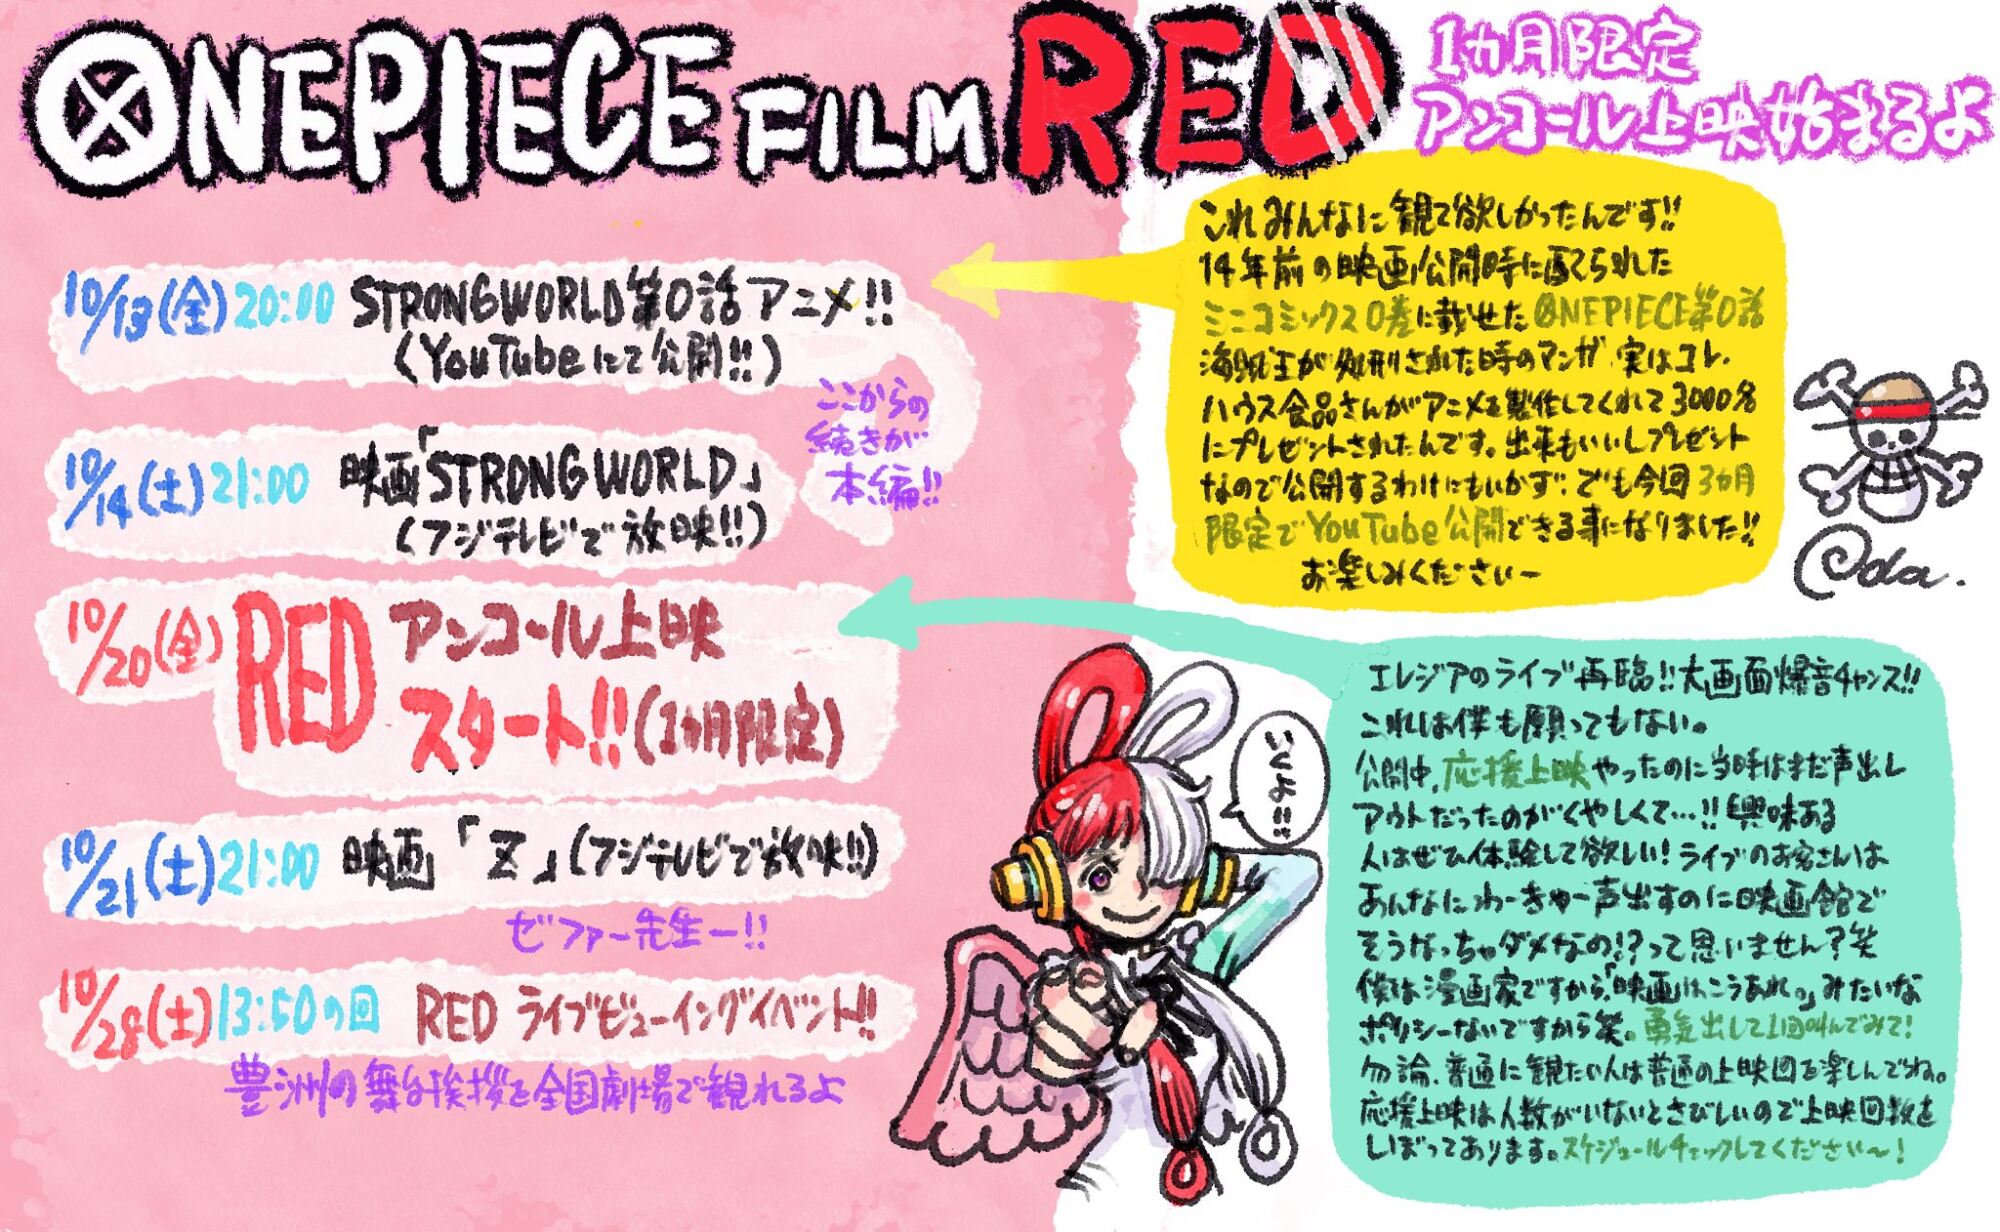 ONE PIECE FILM RED
1ヵ月限定
アンコール上映始まるよ
10/13(金)20:00 STRONG WORLD第0話アニメ!!
(YouTubeにて公開!!)
ここからの
続きが
本編!!
10/14(土)21:00 映画「STRONG WORLD」
(フジテレビで放映!!)
10/20(金) RED アンコール上映
スタート!!(1ヵ月限定)
10/21(土)21:00 映画「Z」(フジテレビで放映!!)
ゼファー先生ー!!
10/28(土)13:50の回 RED ライブビューイングイベント!!
豊洲の舞台挨拶を全国劇場で観れるよ
これみんなに観て欲しかったんです!!
14年前の映画公開時に建てられた
ミニコミックス0巻に載せたONE PIECE第0話
海賊王が処刑された時のマンガ、実はコレ、
ハウス食品さんがアニメを製作してくれて3000名
にプレゼントされたんです。出来もいいしプレゼント
なので公開するわけにもいかず…でも今回3ヵ月
限定でYouTube公開できる事になりました!!
お楽しみくださいー
Oda.
いくよ!!
エレジアのライブ再臨!!大画面爆音チャンス!!
これは僕も願ってもない。
公開中、応援上映やったのに当時はまだ声出し
アウトだったのがくやしくて…!!興味ある
人はぜひ体験して欲しい!ライブのお客さんは
あんなにわーきゃー声出すのに映画館で
そうなっちゃダメなの!?って思いません?笑
僕は漫画家ですから、「映画はこうあれ。」みたいな
ポリシーないですから笑。勇気出して1回叫んでみて!
勿論、普通に観たい人は普通の上映回を楽しんでね。
応援上映は人数がいないとさびしいので上映回数を
しぼってあります。スケジュールチェックしてくださいー!